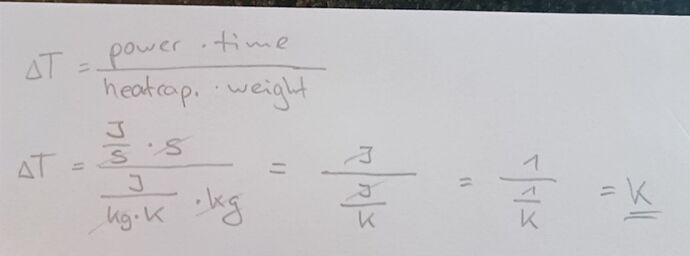 ΔT = power · time / heatcap. · weight
ΔT = (J/s · s) / (J/(kg·K) · kg) = J / (J/K) = 1 / (1/K) = K